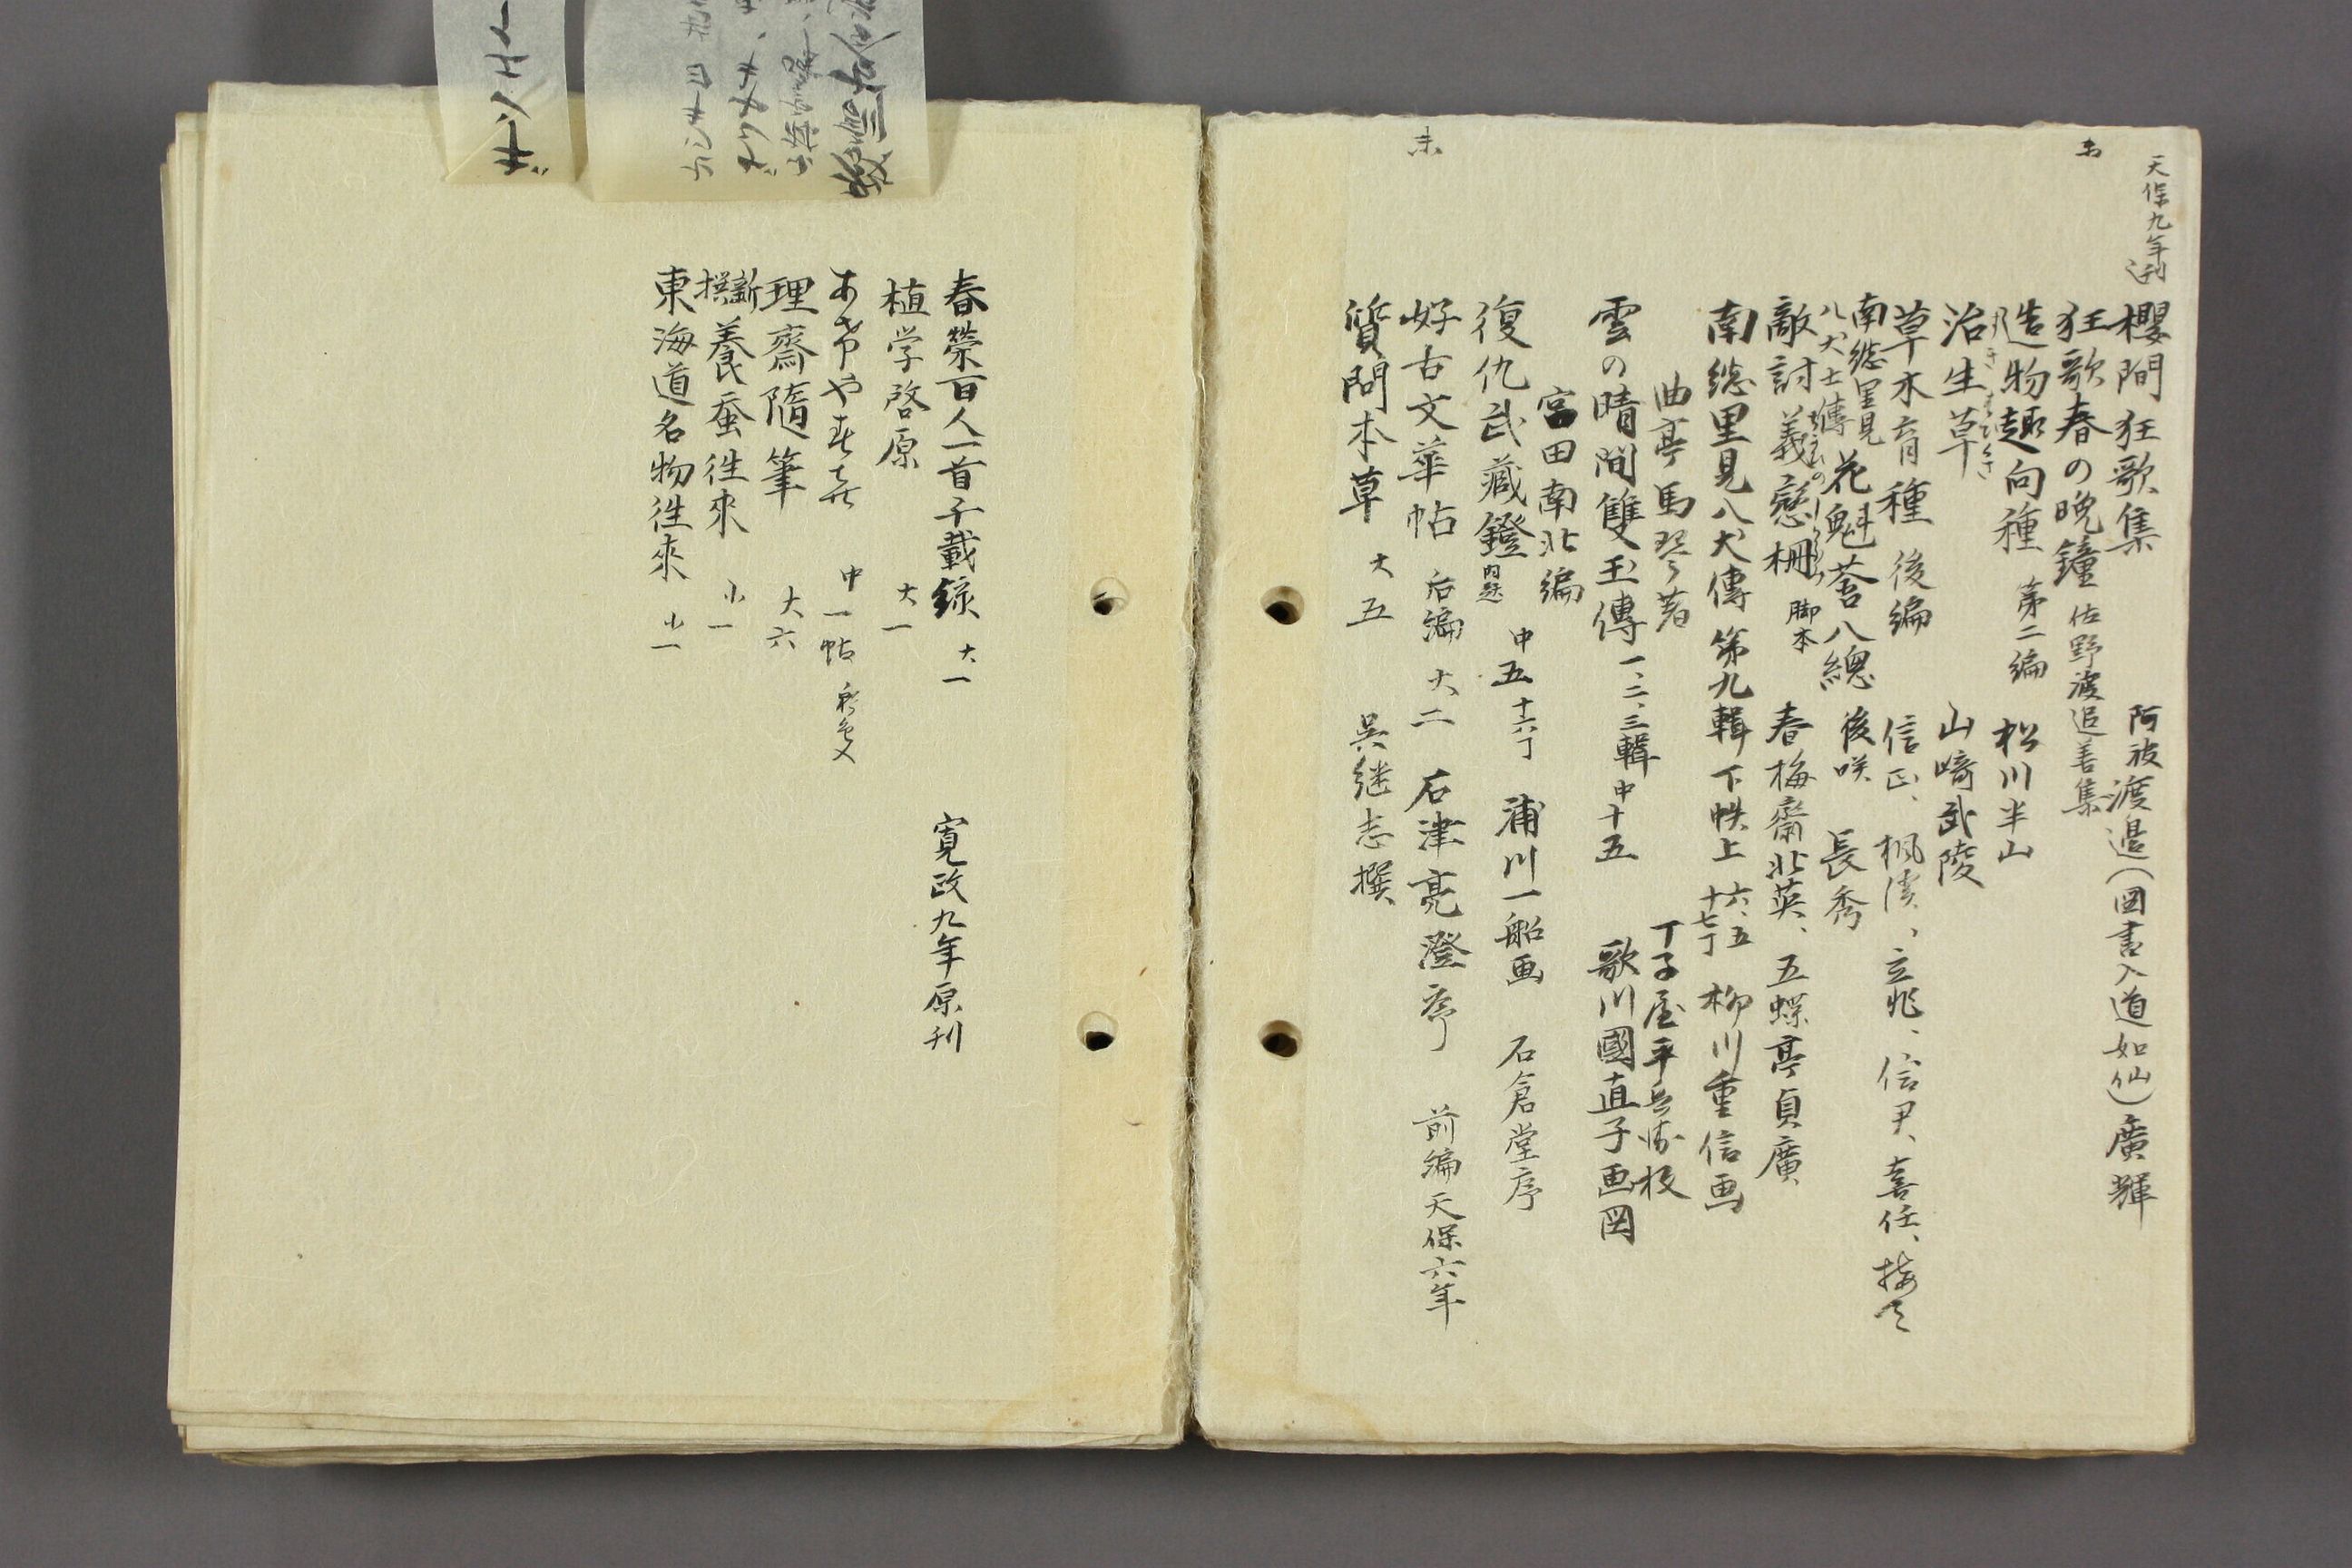 天保九年刊
櫻間狂歌集 阿波渡邉(図書入道如仙)廣輝
狂歌春の晩鐘 佐野渡追善集
造物趣向種 第二編 松川半山
治生草 山﨑武陵
草木育種 後編 信正、楓渓、立兆、信尹、喜任、
南総里見八犬士傳 花魁莟八總 後咲 長秀
敵討義戀柵 脚本 春梅齋北英、五蝶亭貞廣
南総里見八犬傳 第九輯 下帙上 六、五 十七丁 柳川重信画
曲亭馬琴著 丁子屋平兵衛板
雲の晴間雙玉傳 一、二、三輯 中十五 歌川國直子画図
宮田南北編
復仇武藏鐙 内題 中五 十六丁 浦川一船画 石倉堂序
好古文華帖 后編 大二 石津亮澄序 前編天保六年
質問本草 大五 呉継志撰
春榮百人一首千載錺 大一 寛政九年原刊
植学啓原 大一
中一帖 彩色入
理齋隨筆 大六
新撰養蚕徃來 小一
東海道名物徃來 小一